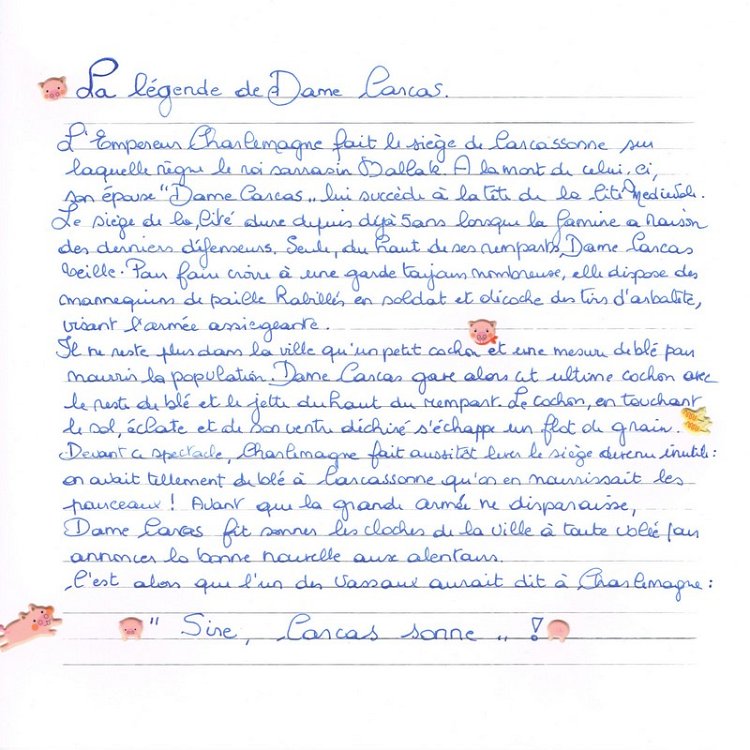 La légende de Dame Carcas.
L'Empereur Charlemagne fait le siège de Carcassonne sur
laquelle règne le roi sarrasin Ballak. A la mort de celui-ci,
son épouse "Dame Carcas" lui succède à la tête de la Cité Medievale.
Le siège de la Cité dure depuis déjà 5 ans lorsque la famine a raison
des derniers défenseurs. Seule, du haut de ses remparts, Dame Carcas
veille. Pour faire croire à une garde toujours nombreuse, elle dispose des
mannequins de paille habillés en soldat et décoche des tirs d'arbalète,
visant l'armée assiegeante.
Il ne reste plus dans la ville qu'un petit cochon et une mesure de blé pour
nourrir la population. Dame Carcas gave alors cet ultime cochon avec
le reste de blé et le jette du haut du rempart. Le cochon, en touchant
le sol, éclate et de son ventre déchiré s'échappe un flot de grain.
Devant ce spectacle, Charlemagne fait aussitôt lever le siège devenu inutile :
on avait tellement de blé à Carcassonne qu'on en nourrissait les
pourceaux ! Avant que la grande armée ne disparaisse,
Dame Carcas fit sonner les cloches de la ville à toute volée pour
annoncer la bonne nouvelle aux alentours.
C'est alors que l'un des vassaux aurait dit à Charlemagne :
" Sire, Carcas sonne " !